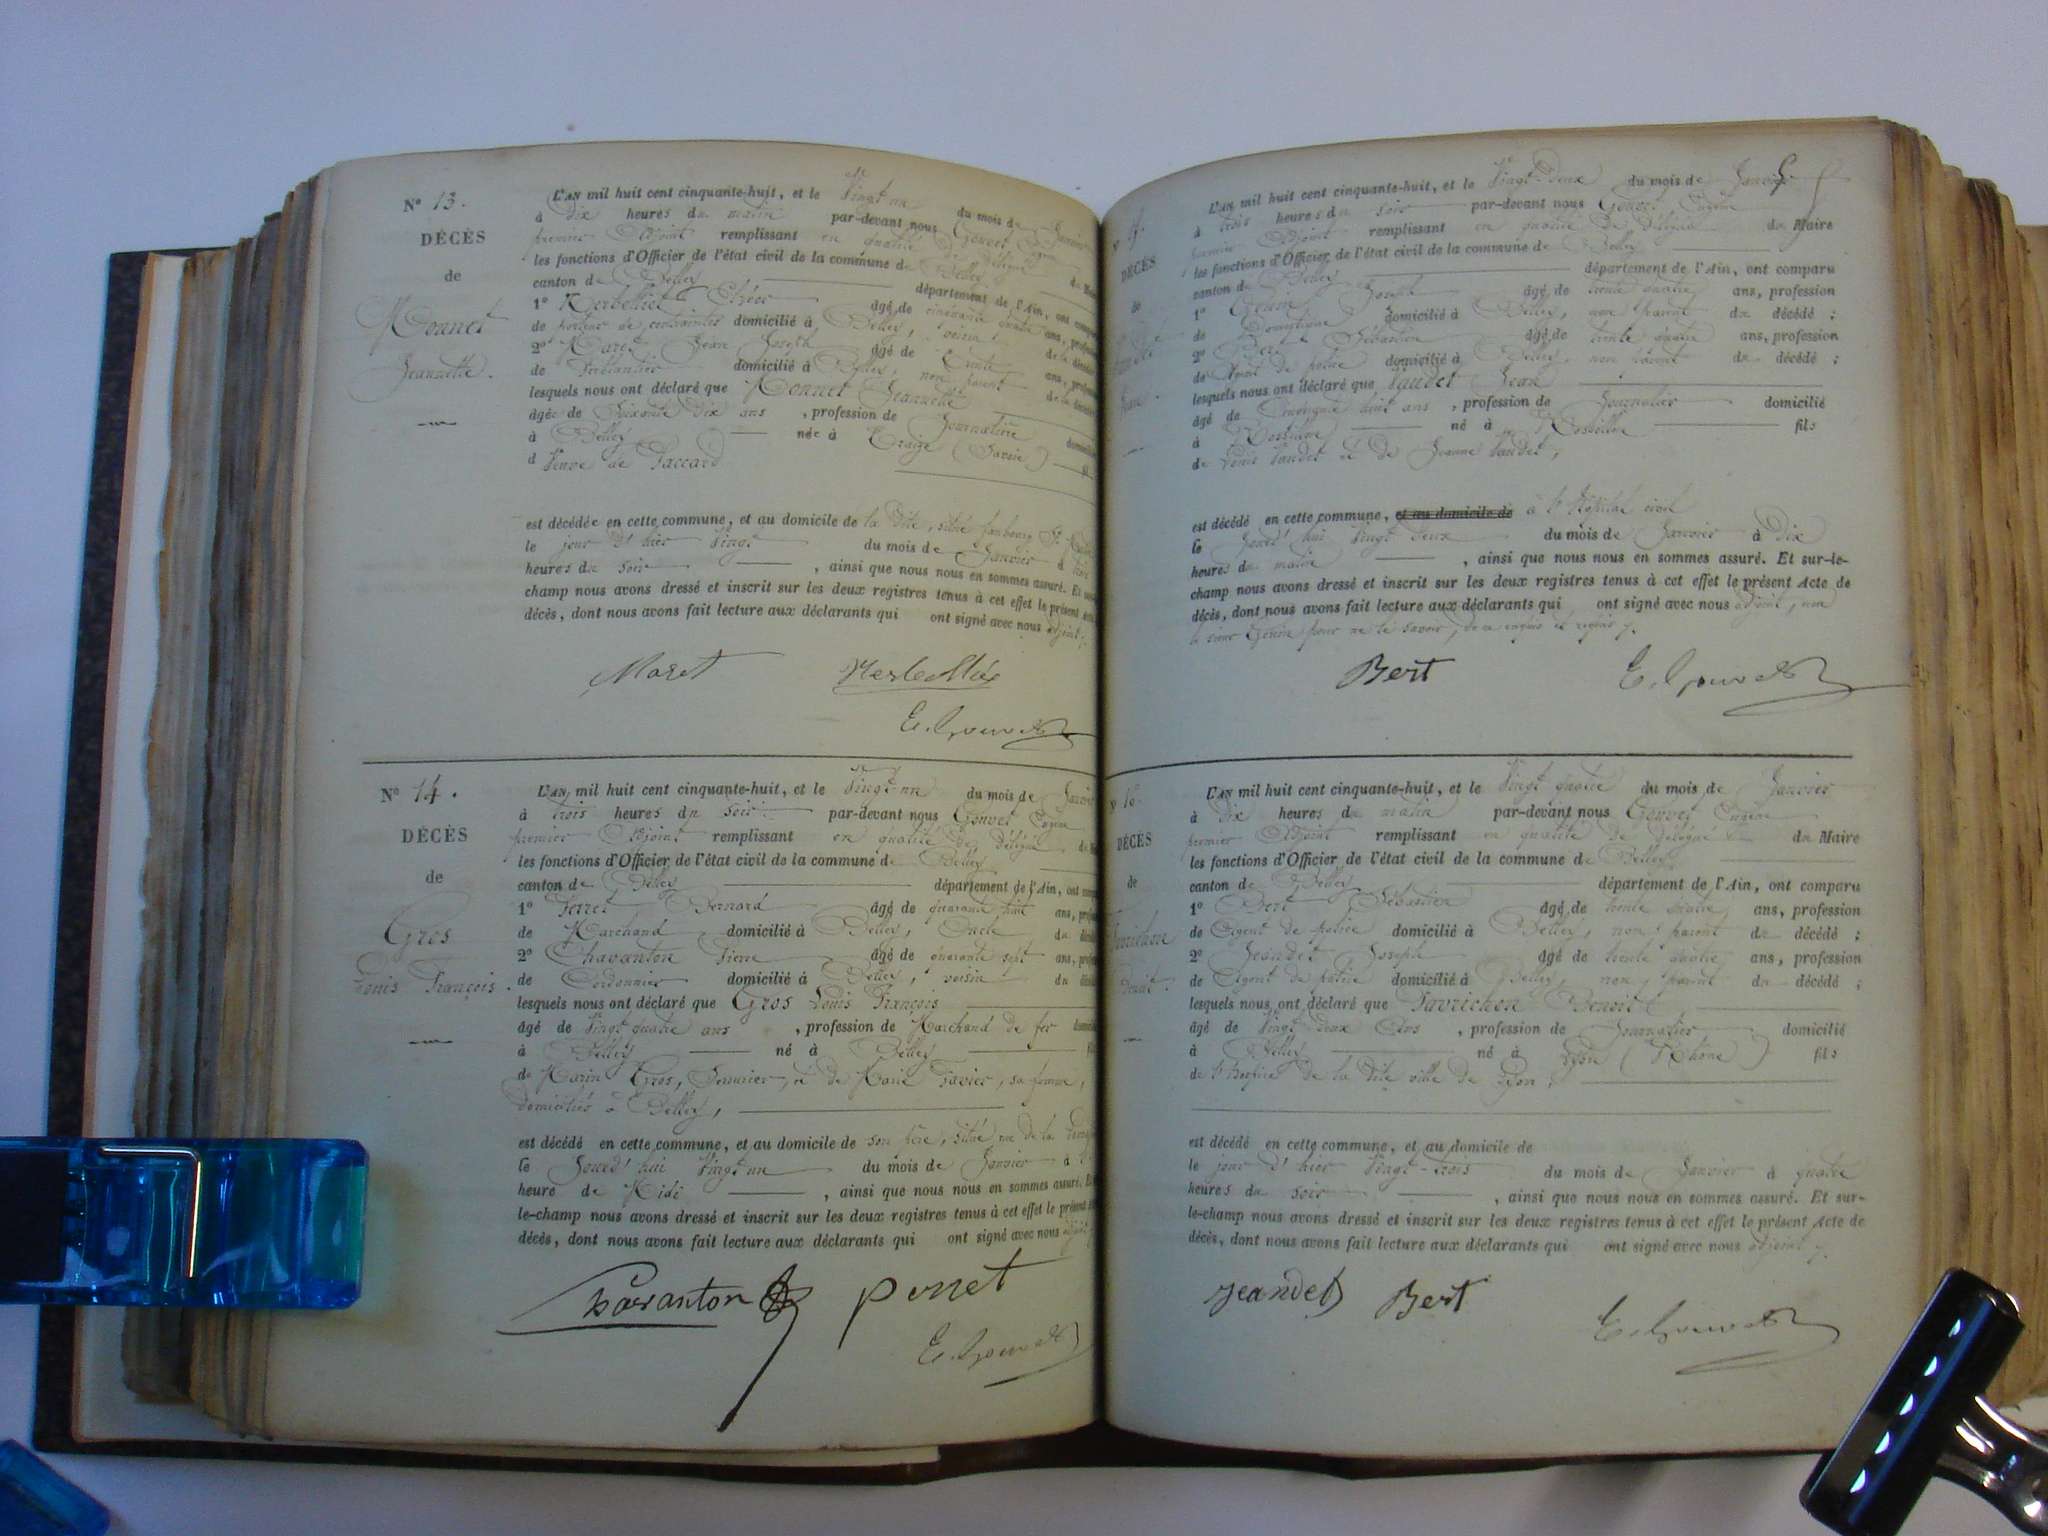 Nº 13.
DÉCÈS
de
Monnet
Jeannette.
L'AN mil huit cent cinquante-huit, et le Vingt un du mois de Janvier
à Dix heures du matin par-devant nous Gouvet
premier Adjoint remplissant en qualité de délégué du Maire
les fonctions d'Officier de l'état civil de la commune de Belley
canton de Belley département de l'Ain, ont comparu
1º âgé de cinquante quatre ans, profession
de porteur de contraintes domicilié à Belley, voisin de la décédée
2º Maret Jean Joseph âgé de trente ans, profession
de Ferblantier domicilié à Belley, non parent de la décédée
lesquels nous ont déclaré que Monnet Jeannette
âgée de Soixante dix ans, profession de Journalière domiciliée
à Belley née à Traize (Savoie)
Veuve de Paccard
est décédée en cette commune, et au domicile de la dite, situé faubourg St.
le jour d'hier Vingt du mois de Janvier à
heures du soir, ainsi que nous nous en sommes assuré. Et sur-le-
champ nous avons dressé et inscrit sur les deux registres tenus à cet effet le présent acte
décès, dont nous avons fait lecture aux déclarants qui ont signé avec nous adjoint
Maret
E. Gouvet
Nº 14.
DÉCÈS
de
Gros
Louis François.
L'AN mil huit cent cinquante-huit, et le Vingt-un du mois de Janvier
à trois heures du soir par-devant nous Gouvet Eugène
premier Adjoint remplissant en qualité de délégué du
les fonctions d'Officier de l'état civil de la commune de Belley
canton de Belley département de l'Ain, ont comparu
1º Perret Bernard âgé de quarante huit ans, profession
de Marchand domicilié à Belley, Oncle du décédé
2º Chavanton Pierre âgé de quarante sept ans, profession
de Cordonnier domicilié à Belley, voisin du décédé
lesquels nous ont déclaré que Gros Louis François
âgé de Vingt quatre ans, profession de Marchand de fer domicilié
à Belley né à Belley fils
de Marin Gros, Serrurier, et de Marie Favier, sa femme,
domiciliés à Belley,
est décédé en cette commune, et au domicile de son père, situé rue de la
le Jourd'hui Vingt-un du mois de Janvier à
heure de Midi, ainsi que nous nous en sommes assuré. Et
le-champ nous avons dressé et inscrit sur les deux registres tenus à cet effet le présent
décès, dont nous avons fait lecture aux déclarants qui ont signé avec nous adjoint
Chavanton perret
E. Gouvet
DÉCÈS
de
Jean.
L'AN mil huit cent cinquante-huit, et le Vingt-deux du mois de Janvier
à trois heures du soir par-devant nous Gouvet Eugène
premier Adjoint remplissant en qualité de délégué du Maire
les fonctions d'Officier de l'état civil de la commune de Belley
canton de Belley département de l'Ain, ont comparu
1º Genin Joseph âgé de trente quatre ans, profession
de Domestique domicilié à Belley, non parent du décédé ;
2º Bert Sébastien âgé de trente quatre ans, profession
de Agent de police domicilié à Belley, non parent du décédé ;
lesquels nous ont déclaré que Vaudet Jean
âgé de Cinquante huit ans, profession de Journalier domicilié
à Rossillon né à Rossillon fils
de Louis Vaudet et de Jeanne Vaudet,
est décédé en cette commune, et au domicile de à l'Hôpital civil
le Jourd'hui Vingt deux du mois de Janvier à Dix
heures du matin, ainsi que nous nous en sommes assuré. Et sur-le-
champ nous avons dressé et inscrit sur les deux registres tenus à cet effet le présent Acte de
décès, dont nous avons fait lecture aux déclarants qui ont signé avec nous adjoint, non
le sieur Genin pour ne le savoir, de ce enquis et requis
Bert
E. Gouvet
DÉCÈS
de
Favrichon
Benoit.
L'AN mil huit cent cinquante-huit, et le Vingt quatre du mois de Janvier
à Dix heures du matin par-devant nous Gouvet Eugène
premier Adjoint remplissant en qualité de délégué du Maire
les fonctions d'Officier de l'état civil de la commune de Belley
canton de Belley département de l'Ain, ont comparu
1º Bert Sébastien âgé de trente quatre ans, profession
de Agent de police domicilié à Belley, non parent du décédé ;
2º Jeandet Joseph âgé de trente quatre ans, profession
de Agent de police domicilié à Belley, non parent du décédé ;
lesquels nous ont déclaré que Favrichon Benoit
âgé de Vingt deux Ans, profession de Journalier domicilié
à Belley né à Lyon (Rhône) fils
de l'hospice de la dite ville de Lyon,
est décédé en cette commune, et au domicile de
le jour d'hier Vingt-trois du mois de Janvier à quatre
heures du soir, ainsi que nous nous en sommes assuré. Et sur-
le-champ nous avons dressé et inscrit sur les deux registres tenus à cet effet le présent Acte de
décès, dont nous avons fait lecture aux déclarants qui ont signé avec nous adjoint
Jeandet Bert
E. Gouvet